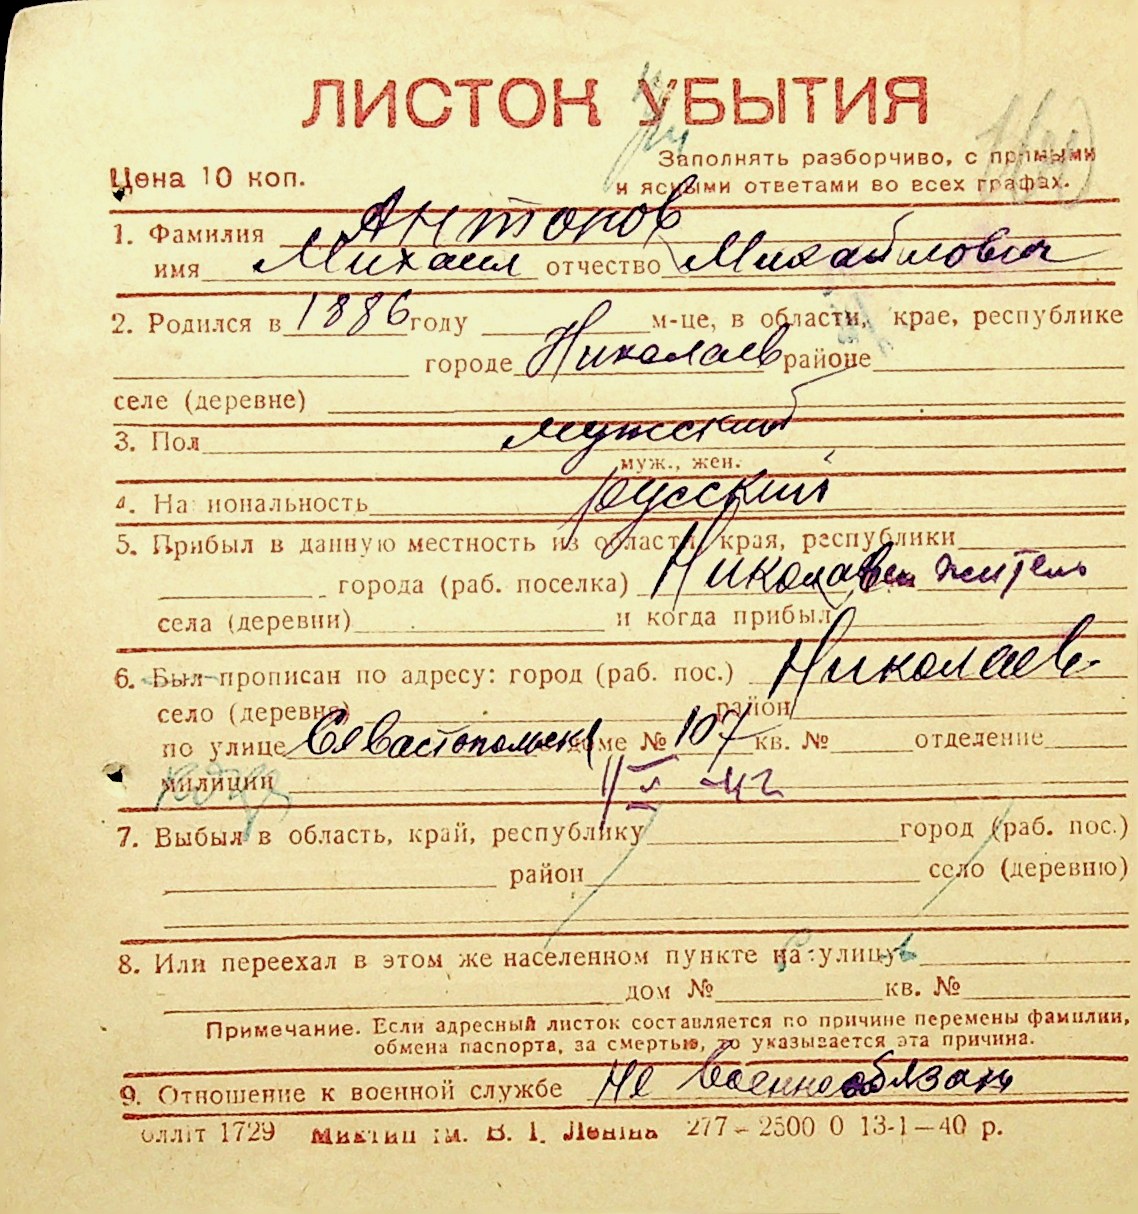 ЛИСТОК УБЫТИЯ
Цена 10 коп.
Заполнять разборчиво, с прямыми
и ясными ответами во всех графах.
1. Фамилия Антонов
имя Михаил отчество Михайлович
2. Родился в 1886 году м-це, в области, крае, республике
городе Николаев районе
селе (деревне)
3. Пол мужской
муж., жен.
4. Национальность русский
5. Прибыл в данную местность из области, края, республики
города (раб. поселка) Николаев житель
села (деревни) и когда прибыл
6. Был прописан по адресу: город (раб. пос.) Николаев
село (деревне) район
по улице Севастопольск доме № 107 кв. № отделение
милиции
7. Выбыл в область, край, республику город (раб. пос.)
район село (деревню)
8. Или переехал в этом же населенном пункте на улицу
дом № кв. №
Примечание. Если адресный листок составляется по причине перемены фамилии,
обмена паспорта, за смертью, то указывается эта причина.
9. Отношение к военной службе Не военнообязан
1729 ім. В. І. Леніна 277–2500 0 13-1–40 р.